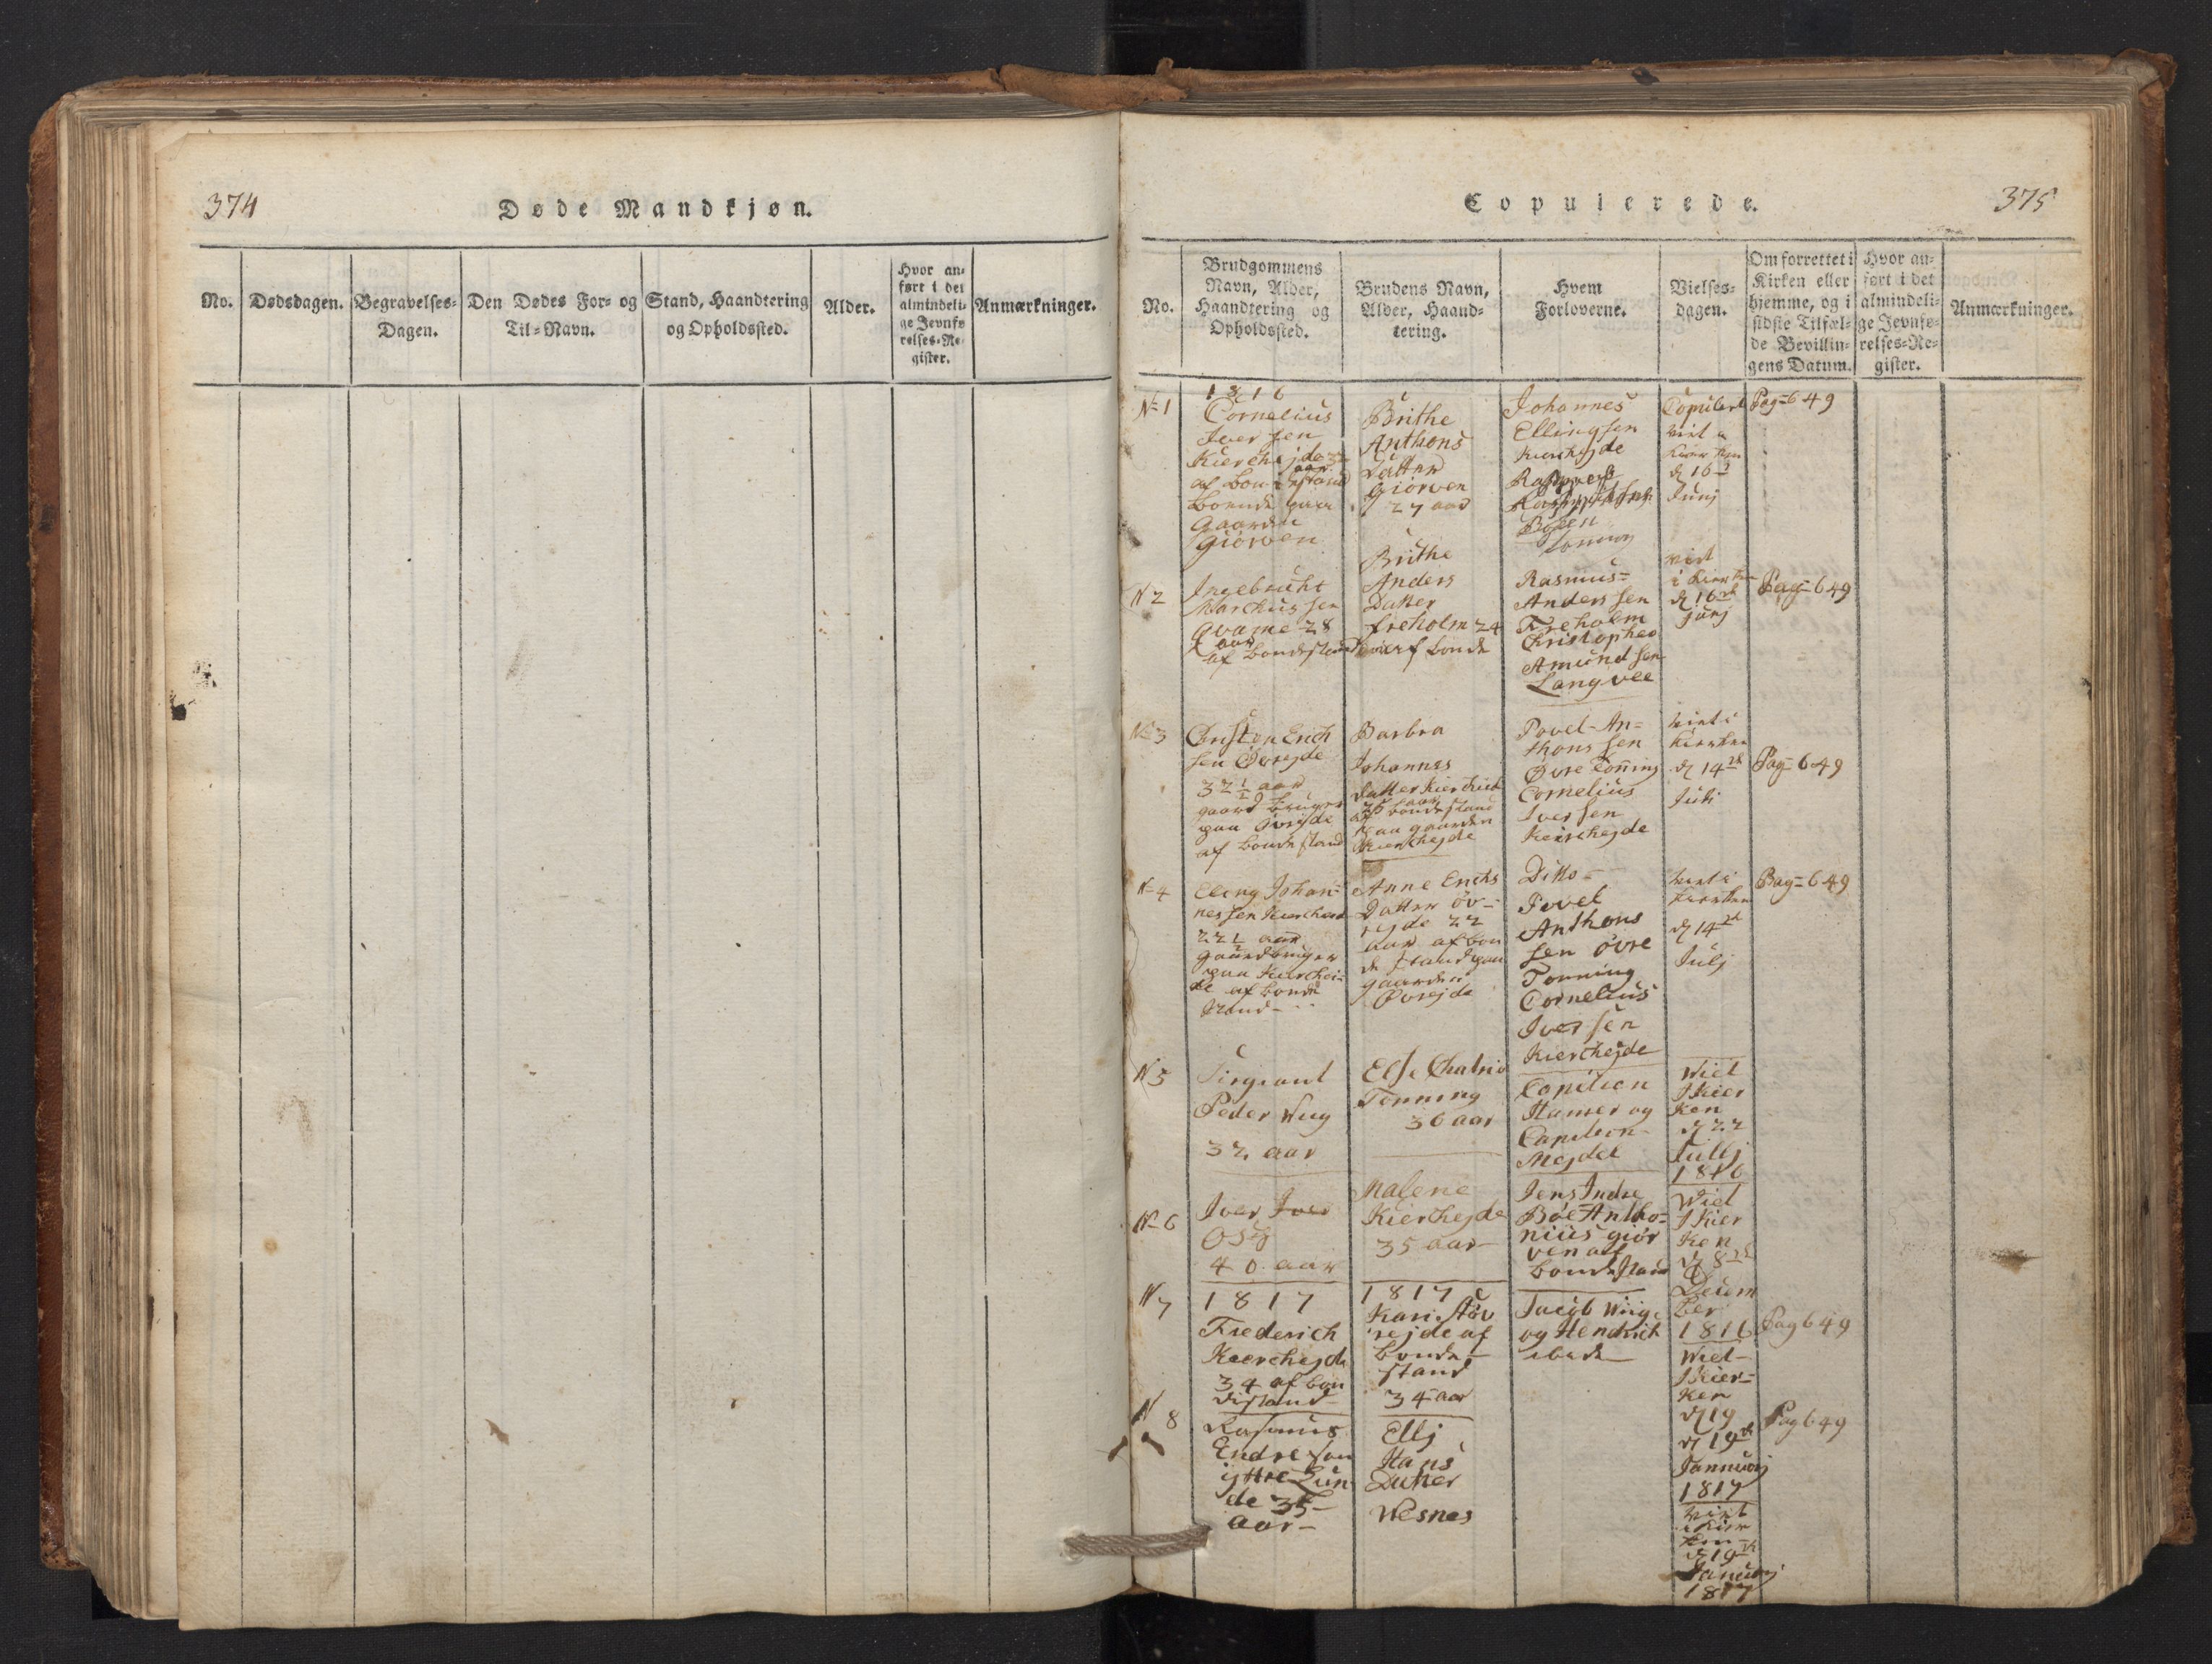 374
Døde Mandkjøn.
No.
Dødsdagen.
Begravelses-
Dagen.
Den Dødes For- og
Til-Navn.
Stand, Haandtering
og Opholdssted.
Alder.
Hvor an-
ført i det
almindeli-
ge Jevnfø-
relses-Re-
gister.
Anmærkninger.
Copulerede.
375
No.
Brudgommens
Navn, Alder,
Haandtering og
Opholdssted.
Brudens Navn,
Alder, Haand-
tering.
Hvem
Forloverne.
Vielses-
dagen.
Om forrettet i
Kirken eller
hjemme, og i
sidste Tilfæl-
de Bevillin-
gens Datum.
Hvor an-
ført i det
almindeli-
ge Jevnfø-
relses-Re-
gister.
Anmærkninger.
1816
N=1
Cornelius
Iversen
Kierchejde 32
aar
af bondestand
boende paa
Gaarden
Giørven
Brithe
Anthons
Datter
Giørven
27 aar
Johannes
Ellingsen
Kierchejde
Copulert
d 16
Junj
Pag=649
N 2
Ingebricht
Marchussen
Qvame 28
aar
af bondestand
Brithe
Anders
Datter
freholm 24
Rasmus=
Anderssen
Freholm
Christopher
Amundsen
Langvee
viet
i Kierken
d 16de
junj
Pag=649
N=3
Erich
sen Øvrejde
32 1/2 aar
gaard bruger
paa Øvrejde
af bondestand
Barbra
Johannes
Datter Kiercheid
25 aar
af bondestand
paa gaarden
Kierchejde
Povel An=
thonsen
Øvre Tonning
Cornelius
Iversen
Kierchejde
viet i
Kierken
d 14de
Juli
Pag=649
N=4
Eling Johan=
nessen Kiercheid
22 1/2 aar
gaardbruger
paa Kierchei=
de af bonde
stand
Anne Erichs
Datter øv=
rejde 22
aar af bon
de stand paa
gaarden
Øvrejde
Ditto=
Povel
Anthons
sen øvre
Tonning
Cornelius
Iversen
Kierchejde
viet i
Kierken
d 14de
Julj
Pag=649
N 5
Sirgiant
Peder Wiig
32 aar
Else
Tonning
36 aar
Capiteen
Hamer og
Capiteen
Mejdel
Wiet
I Kier
Ken
d 22
Julij
1816
N=6
Iver Iver
40 aar
Malene
Kierchejde
35 aar
Jens Indre
Bøe Antho=
nius giør
ven alf
bondestand
Wiet
I Kier
Ken
d 8de
Decem
ber
1816
N 7
1817
Frederich
Kierchejde
34 af bon
destand
1817
Kari støv
rejde af
bonde
stand
34 aar
Jacob Wiig
og Hendrich
Wiet
I Kier=
Ken
d 19
d 19de
Jannuarj
1817
Pag 649
N 8
Rasmus
Endreson
ijttre Lun
de 35
aar
Ellj
Hans
Datter
Wesnes
viet
i Kier
ken
d 19de
Januarj
1817
Pag 649